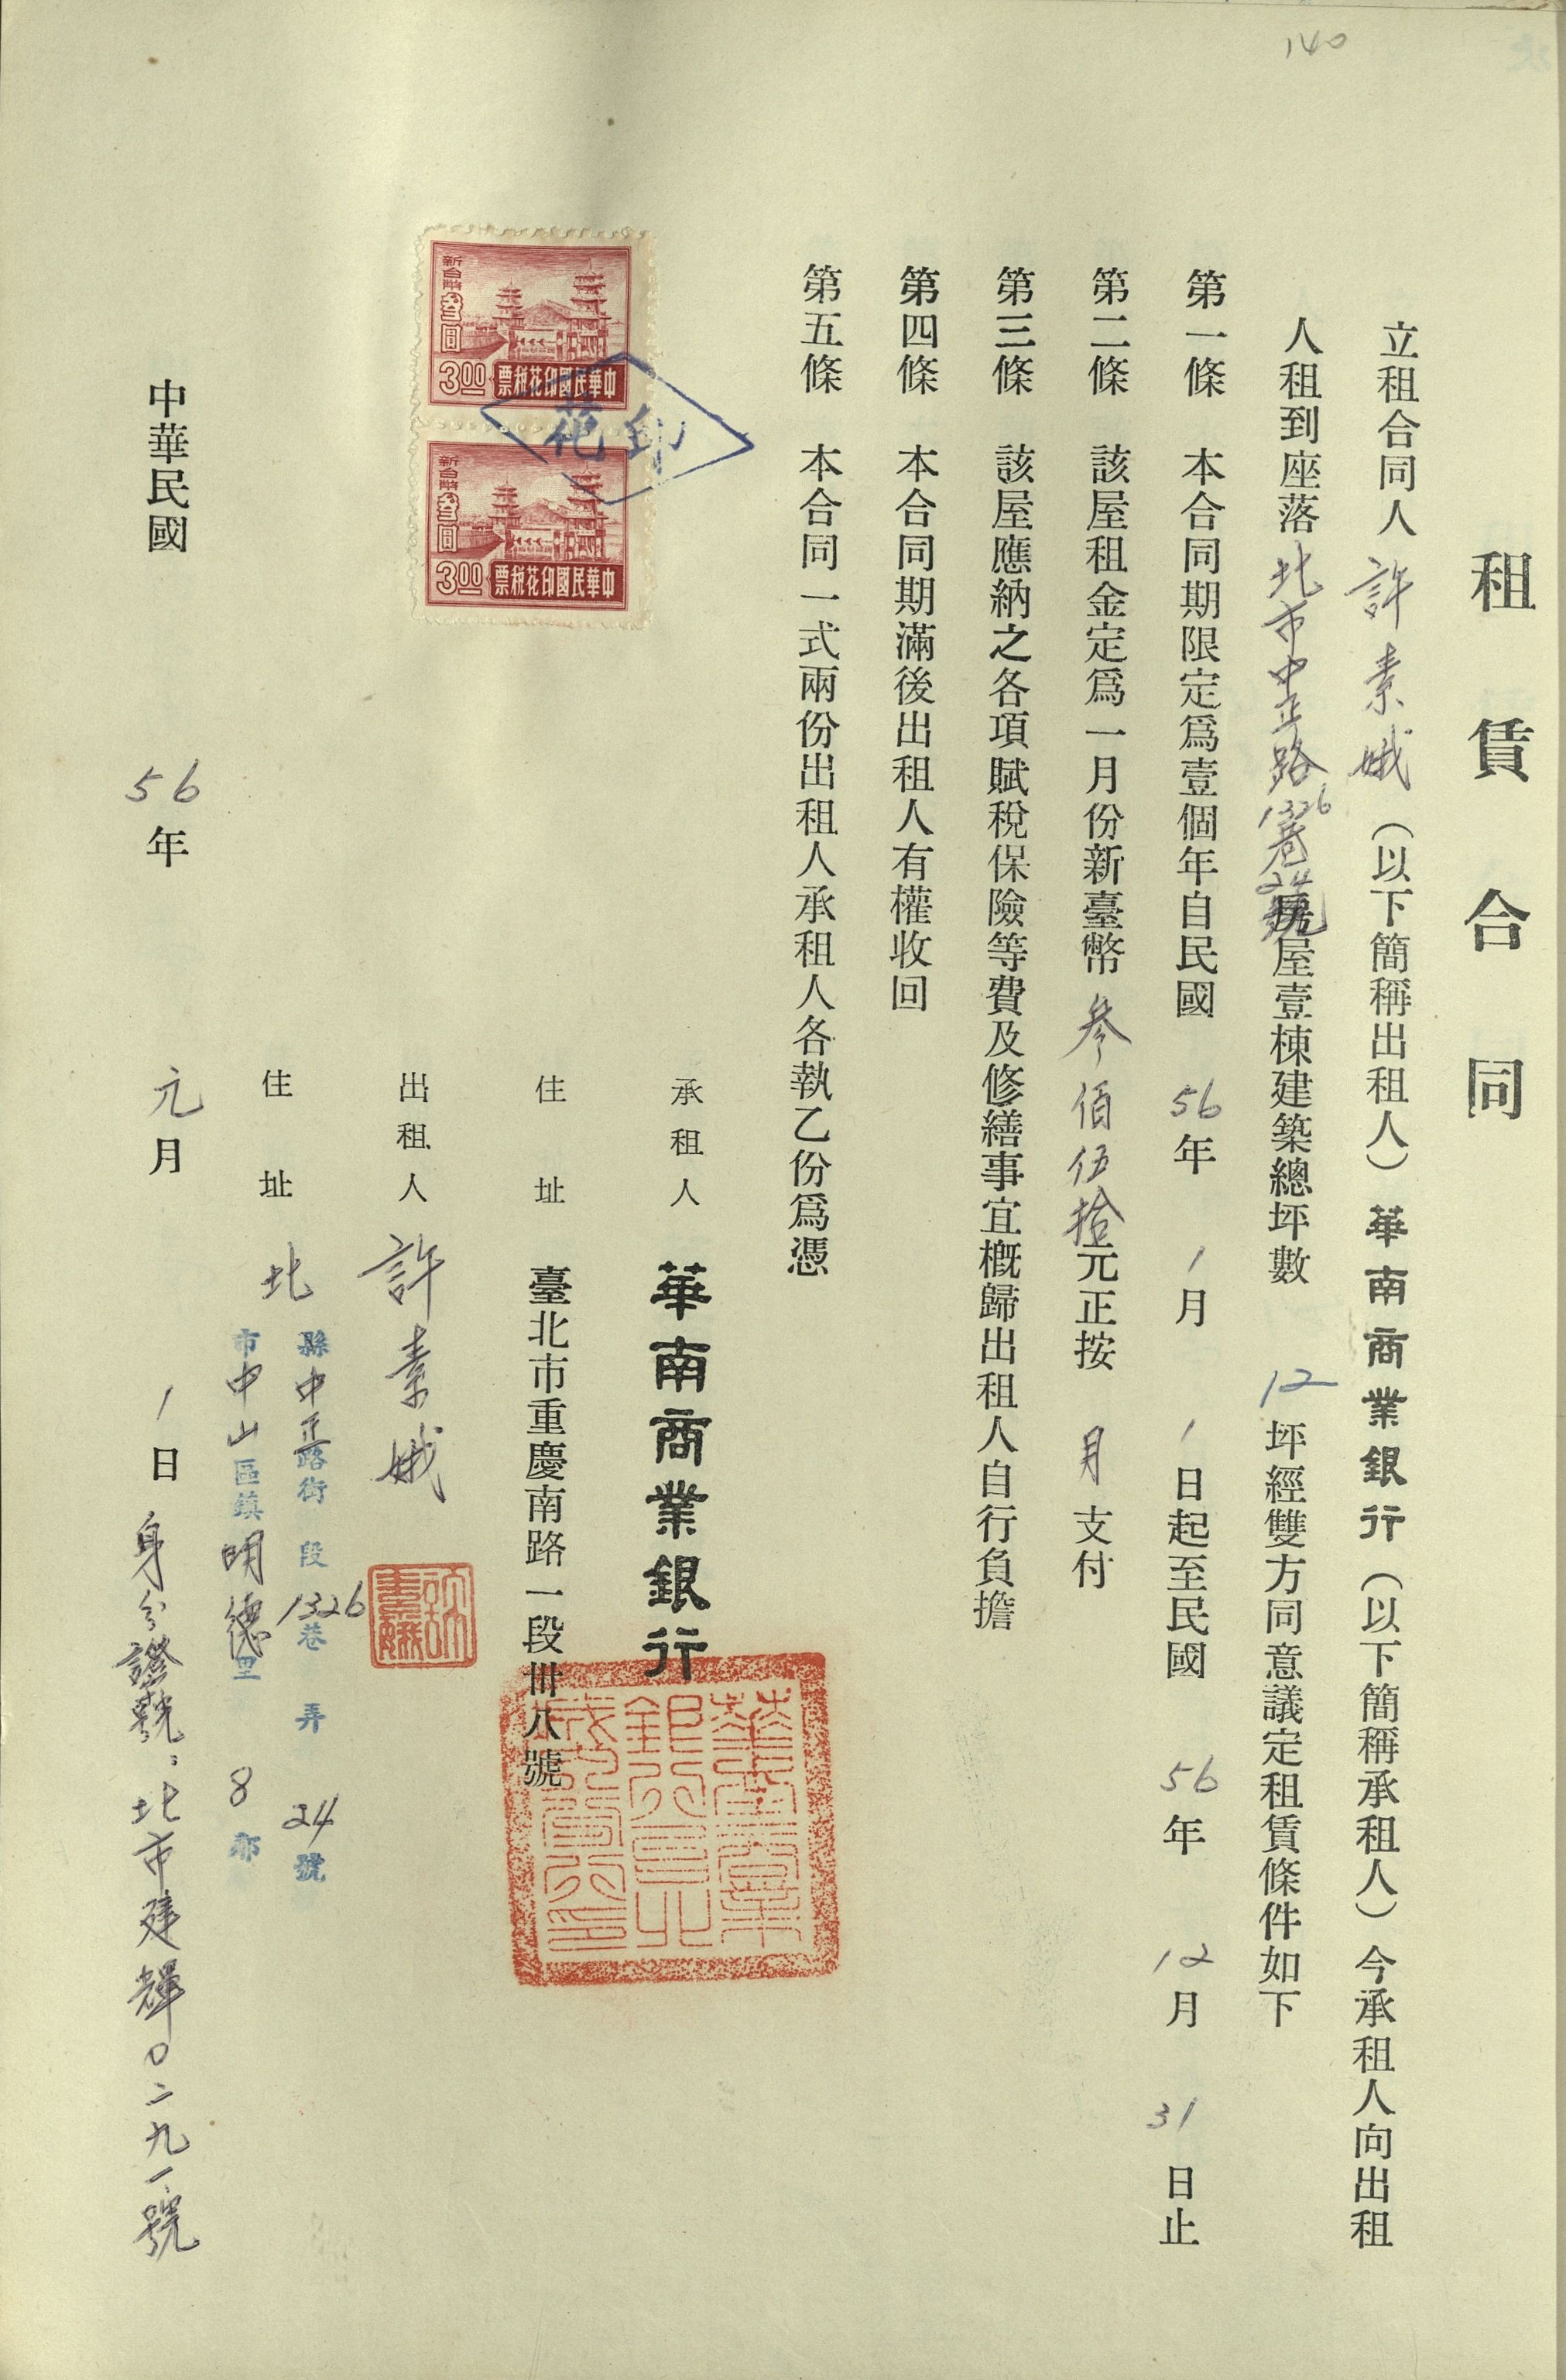 140
租賃合同
立租合同人許素娥（以下簡稱出租人）華南商業銀行（以下簡稱承租人）今承租人向出租
人租到座落北市中正路1326巷24號房屋壹棟建築總坪數12坪經雙方同意議定租賃條件如下
第一條 本合同期限定爲壹個年自民國56年1月1日起至民國56年12月31日止
第二條 該屋租金定爲一月份新臺幣參佰伍拾元正按月支付
第三條 該屋應納之各項賦稅保險等費及修繕事宜概歸出租人自行負擔
第四條 本合同期滿後出租人有權收回
第五條 本合同一式兩份出租人承租人各執乙份爲憑
新台幣叁圓
3.00
票稅花印國民華中
新台幣叁圓
3.00
票稅花印國民華中
印花
承租人 華南商業銀行
住址 臺北市重慶南路一段卅八號
出租人 許素娥
住址 北
縣中正路街 段1326巷 弄24號
市中山區鎮明德里8鄰
中華民國56年元月1日
身分證號：北市建輝0二九一號